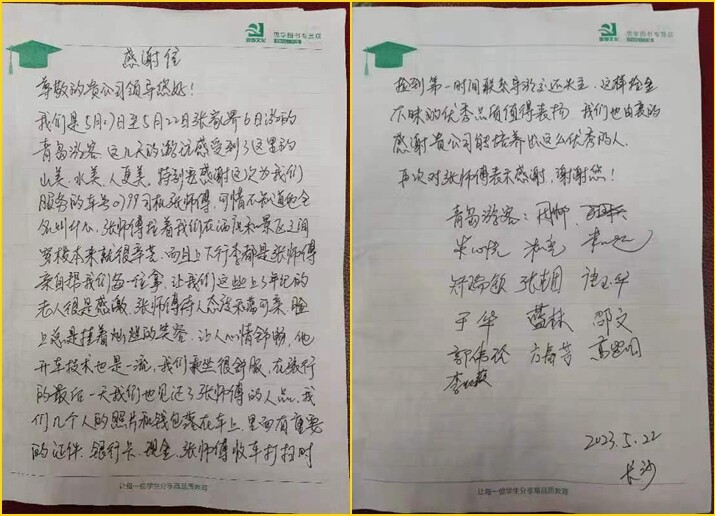 优学图书专营店
感谢信
尊敬的贵公司领导您好!
我们是5月17日至5月22日张家界6日游的
青岛游客 这几天的游玩感受到了这里的
山美、水美、人更美,特别要感谢这次为我们
服务的车号0199司机张师傅,可惜不知道他全
名叫什么,张师傅拉着我们在酒店和景区之间
穿梭本来就很辛苦,而且上下行李都是张师傅
亲自帮我们每一位拿,让我们这些上了年纪的
老人很是感激,张师傅待人态度和蔼可亲,脸
上总是挂着灿烂的笑容,让人心情舒畅,他
开车技术也是一流,我们乘坐很舒服,在旅行
的最后一天我们也见证了张师傅的人品,我
们几个人的照片和钱包落在车上,里面有重要
的证件、银行卡、现金,张师傅收车打扫时
让每一位学生分享高品质教育
优学图书专营店
捡到第一时间联系导游送还失主,这样拾金
不昧的优秀品质值得表扬 我们也由衷的
感谢贵公司能培养出这么优秀的人,
再次对张师傅表示感谢,谢谢您!
青岛游客:
郑瑞敏 张朝
于华 蓝林 邵文
郭伟玲 方春芳
2023.5.22
长沙
让每一位学生分享高品质教育